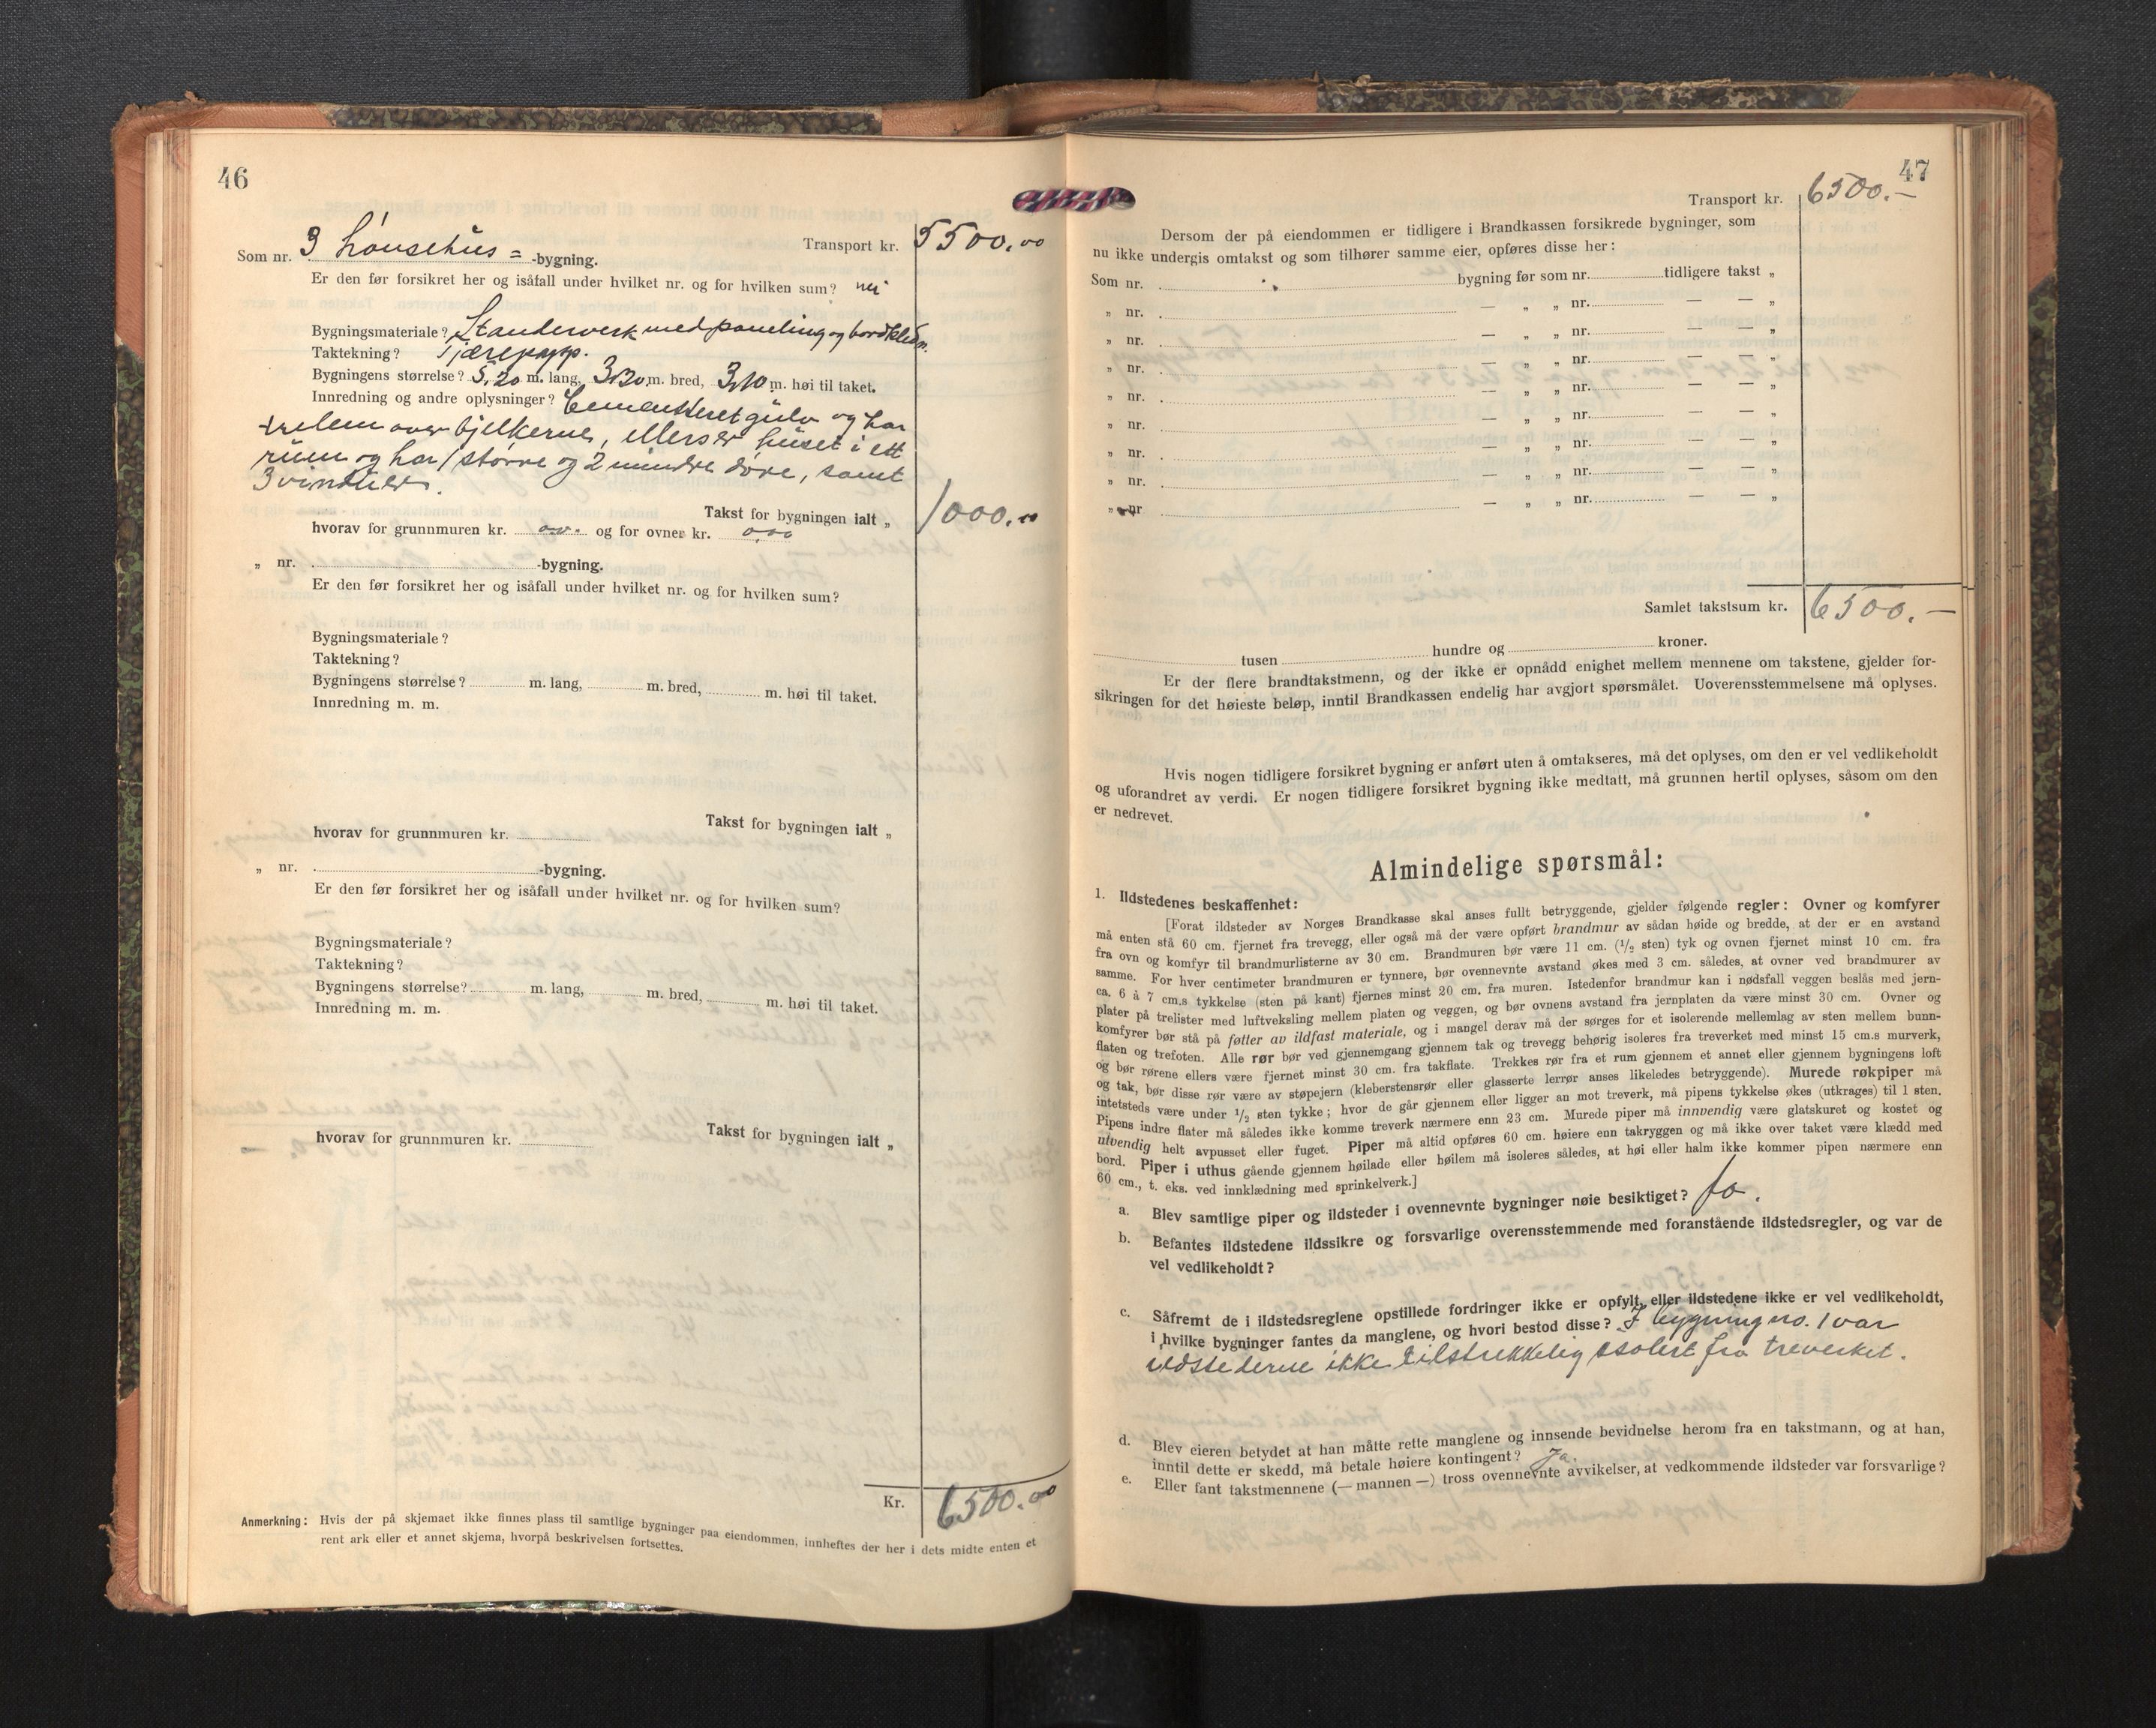 46
Transport kr. 5500.00
Som nr. 3 hönsehus = -bygning.
Er den før forsikret her og isåfall under hvilket nr. og for hvilken sum? nei
Bygningsmateriale? Standerverk med paneling og bordkledn.
Taktekning? Tjærepapp.
Bygningens størrelse? 5,20 m. lang, 3,30 m. bred, 3,10 m. høi til taket.
Innredning og andre oplysninger? Cementeret gulv og har
trelem over bjelkerne, ellers er huset i ett
rum og har 1 större og 2 mindre döre, samt
3 vinduer.
Takst for bygningen ialt „ 1000.00
hvorav for grunnmuren kr. 00. og for ovner kr. 0,00
„ nr. -bygning.
Er den før forsikret her og isåfall under hvilket nr. og for hvilken sum?
Bygningsmateriale?
Taktekning?
Bygningens størrelse? m. lang, m. bred, m. høi til taket.
Innredning m. m.
Takst for bygningen ialt „
hvorav for grunnmuren kr.
„ nr. -bygning.
Er den før forsikret her og isåfall under hvilket nr. og for hvilken sum?
Bygningsmateriale?
Taktekning?
Bygningens størrelse? m. lang, m. bred, m. høi til taket.
Innredning m. m.
Takst for bygningen ialt „
hvorav for grunnmuren kr.
Kr. 6500.00
Anmerkning: Hvis der på skjemaet ikke finnes plass til samtlige bygninger paa eiendommen, innheftes der her i dets midte enten et
rent ark eller et annet skjema, hvorpå beskrivelsen fortsettes.
47
Transport kr. 6500.—
Dersom der på eiendommen er tidligere i Brandkassen forsikrede bygninger, som
nu ikke undergis omtakst og som tilhører samme eier, opføres disse her:
Som nr. bygning før som nr. tidligere takst „
„ nr. — „ „ nr. — — „
„ nr. — „ „ nr. — — „
„ nr. — „ „ nr. — — „
„ nr. — „ „ nr. — — „
„ nr. — „ „ nr. — — „
„ nr. — „ „ nr. — — „
„ nr. — „ „ nr. — — „
„ nr — „ „ nr. — — „
Samlet takstsum kr. 6500.—
tusen hundre og kroner.
Er der flere brandtakstmenn, og der ikke er opnådd enighet mellem mennene om takstene, gjelder for-
sikringen for det høieste beløp, inntil Brandkassen endelig har avgjort spørsmålet. Uoverensstemmelsene må oplyses.
Hvis nogen tidligere forsikret bygning er anført uten å omtakseres, må det oplyses, om den er vel vedlikeholdt
og uforandret av verdi. Er nogen tidligere forsikret bygning ikke medtatt, må grunnen hertil oplyses, såsom om den
er nedrevet.
Almindelige spørsmål:
1. Ildstedenes beskaffenhet:
[Forat ildsteder av Norges Brandkasse skal anses fullt betryggende, gjelder følgende regler: Ovner og komfyrer
må enten stå 60 cm. fjernet fra trevegg, eller også må der være opført brandmur av sådan høide og bredde, at der er en avstand
fra ovn og komfyr til brandmurlisterne av 30 cm. Brandmuren bør være 11 cm. (1/2 sten) tyk og ovnen fjernet minst 10 cm. fra
samme. For hver centimeter brandmuren er tynnere, bør ovennevnte avstand økes med 3 cm. således, at ovner ved brandmurer av
ca. 6 à 7 cm.s tykkelse (sten på kant) fjernes minst 20 cm. fra muren. Istedenfor brandmur kan i nødsfall veggen beslås med jern-
plater på trelister med luftveksling mellem platen og veggen, og bør ovnens avstand fra jernplaten da være minst 30 cm. Ovner og
komfyrer bør stå på føtter av ildfast materiale, og i mangel derav må der sørges for et isolerende mellemlag av sten mellem bunn-
flaten og trefoten. Alle rør bør ved gjennemgang gjennem tak og trevegg behørig isoleres fra treverket med minst 15 cm.s murverk,
og bør rørene ellers være fjernet minst 30 cm. fra takflate. Trekkes rør fra et rum gjennem et annet eller gjennem bygningens loft
og tak, bør disse rør være av støpejern (kleberstensrør eller glasserte lerrør anses likeledes betryggende). Murede røkpiper må
intetsteds være under 1/2 sten tykke; hvor de går gjennem eller ligger an mot treverk, må pipens tykkelse økes (utkrages) til 1 sten.
Pipens indre flater må således ikke komme treverk nærmere enn 23 cm. Murede piper må innvendig være glatskuret og kostet og
utvendig helt avpusset eller fuget. Piper må altid opføres 60 cm. høiere enn takryggen og må ikke over taket være klædd med
bord. Piper i uthus gående gjennem høilade eller høilem må isoleres således, at høi eller halm ikke kommer pipen nærmere enn
60 cm., t. eks. ved innklædning med sprinkelverk.]
a. Blev samtlige piper og ildsteder i ovennevnte bygninger nøie besiktiget? Ja.
b. Befantes ildstedene ildssikre og forsvarlige overensstemmende med foranstående ildstedsregler, og var de
vel vedlikeholdt?
c. Såfremt de i ildstedsreglene opstillede fordringer ikke er opfylt, eller ildstedene ikke er vel vedlikeholdt,
i hvilke bygninger fantes da manglene, og hvori bestod disse? I bygning no. 1 var
ildstederne ikke tilstrekkelig isolert fra treverket.
d. Blev eieren betydet at han måtte rette manglene og innsende bevidnelse herom fra en takstmann, og at han,
inntil dette er skedd, må betale høiere kontingent? Ja.
e. Eller fant takstmennene (— mannen —) tross ovennevnte avvikelser, at vedkommende ildsteder var forsvarlige?